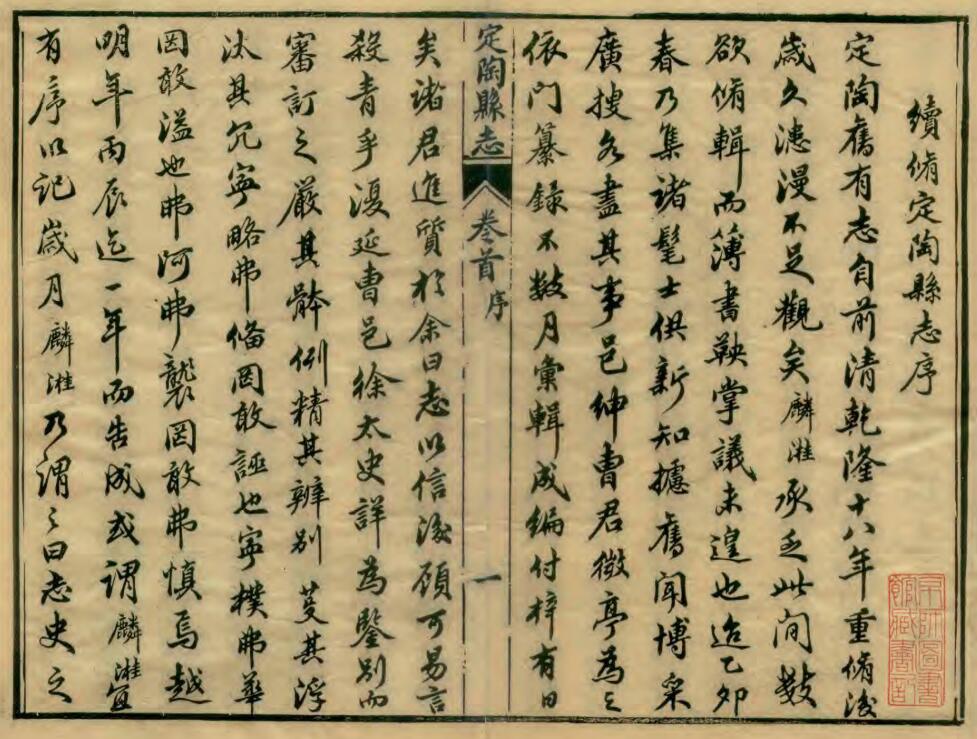 續脩定陶縣志序
定陶舊有志自前清乾隆十八年重脩後
歲久漶漫不足觀矣麟淮承乏此間數
欲脩輯而簿書鞅掌議未遑也迨乙夘
春乃集諸髦士供新知攄舊聞博采
廣搜各盡其事邑紳曹君徴亭為之
依門纂録不數月彙輯成編付梓有日
定陶縣志 卷首 序 一
矣諸君進質於余曰志以信後顧可易言
殺青乎復延曹邑徐太史詳為鑒别而
審訂之嚴其體例精其辨别芟其浮
汰其冗寜略弗俻罔敢誣也寜樸弗華
罔敢溢也弗阿弗襲罔敢弗慎焉越
明年丙辰迄一年而告成或謂麟淮宜
有序以記歲月麟淮乃謂之曰志史之